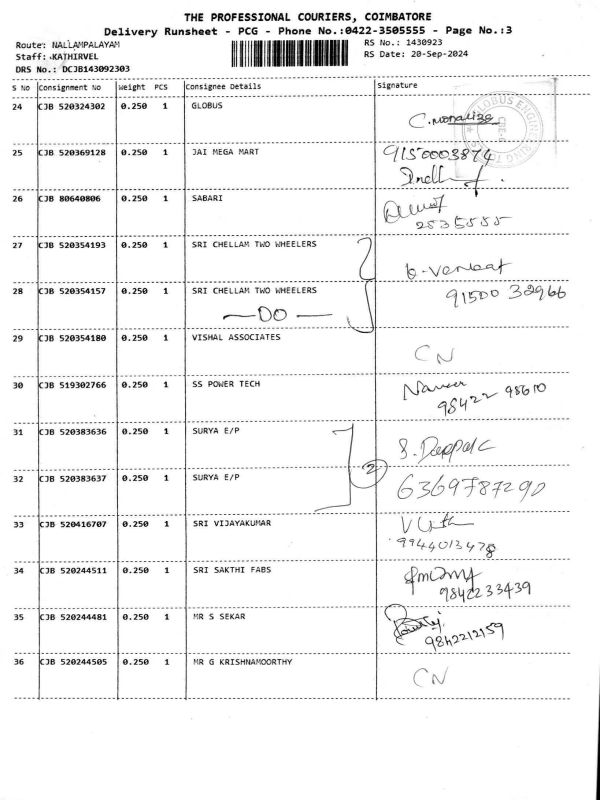 THE PROFESSIONAL COURIERS, COIMBATORE
Delivery Runsheet - PCG - Phone No.:0422-3505555 - Page No.:3
Route: NALLAMPALAYAM
RS No.: 1430923
Staff: KATHIRVEL
RS Date: 20-Sep-2024
DRS No.: DCJB143092303
S No Consignment No Weight PCS Consignee Details Signature
24 CJB 520324302 0.250 1 GLOBUS
GLOBUS ENGINEERING
25 CJB 520369128 0.250 1 JAI MEGA MART 9150003874
26 CJB 80640806 0.250 1 SABARI
2535555
27 CJB 520354193 0.250 1 SRI CHELLAM TWO WHEELERS
b. Venkat
28 CJB 520354157 0.250 1 SRI CHELLAM TWO WHEELERS 91500 32966
— DO —
29 CJB 520354180 0.250 1 VISHAL ASSOCIATES
CN
30 CJB 519302766 0.250 1 SS POWER TECH
98422 98610
31 CJB 520383636 0.250 1 SURYA E/P
S. Deepak
2
32 CJB 520383637 0.250 1 SURYA E/P 6369787290
33 CJB 520416707 0.250 1 SRI VIJAYAKUMAR
9944013478
34 CJB 520244511 0.250 1 SRI SAKTHI FABS
9842233439
35 CJB 520244481 0.250 1 MR S SEKAR
9842212159
36 CJB 520244505 0.250 1 MR G KRISHNAMOORTHY
CN